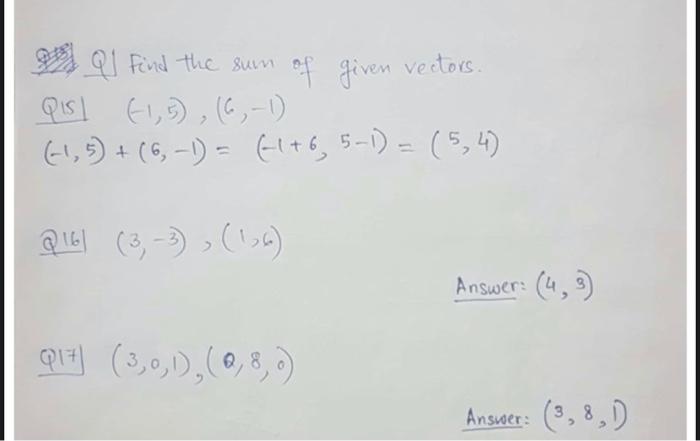 Q| Find the sum of given vectors.
Q15| (-1,5), (6,-1)
(-1,5) + (6,-1) = (-1+6, 5-1) = (5,4)
Q16| (3,-3), (1,6)
Answer: (4,3)
Q17| (3,0,1), (0,8,0)
Answer: (3,8,1)